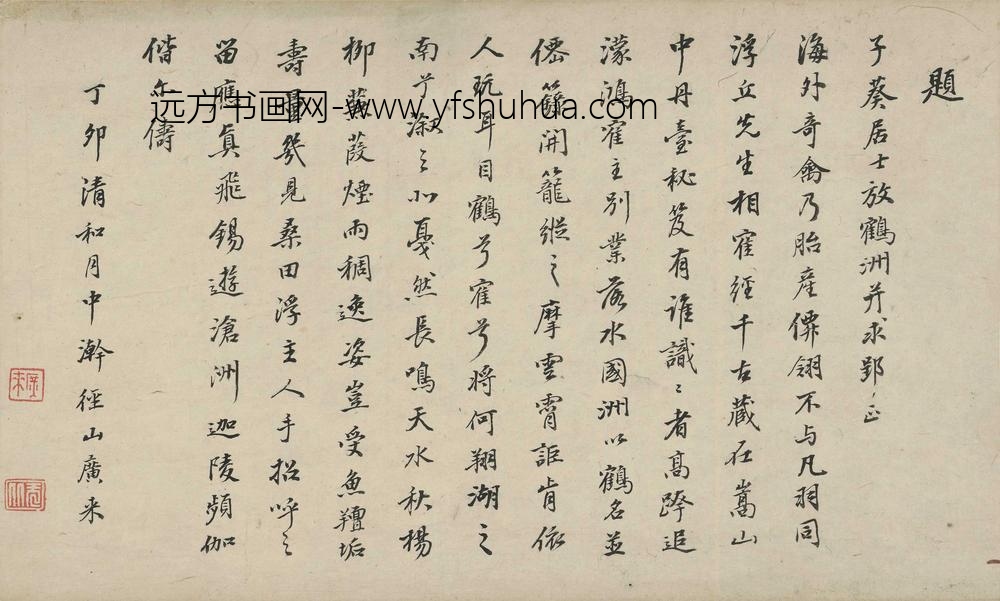 題
子葵居士放鶴洲并求郢正
海外奇禽乃胎產僊翎不与凡羽同
浮丘先生相寉經千古藏在嵩山
中丹臺秘笈有誰識識者高蹤追
濛鴻寉主別業落水國洲以鶴名並
僊籍開籠縱之摩雲霄詎肯依
人玩耳目鶴兮寉兮將何翔湖之
南兮溆之北戞然長鳴天水秋楊
柳蒹葭煙雨稠逸姿豈受魚羶垢
壽幾見桑田浮主人手招呼之
留應真飛錫遊滄洲迦陵頻伽
偕尔儔
丁卯清和月中澣徑山廣来
远方书画网-www.yfshuhua.com